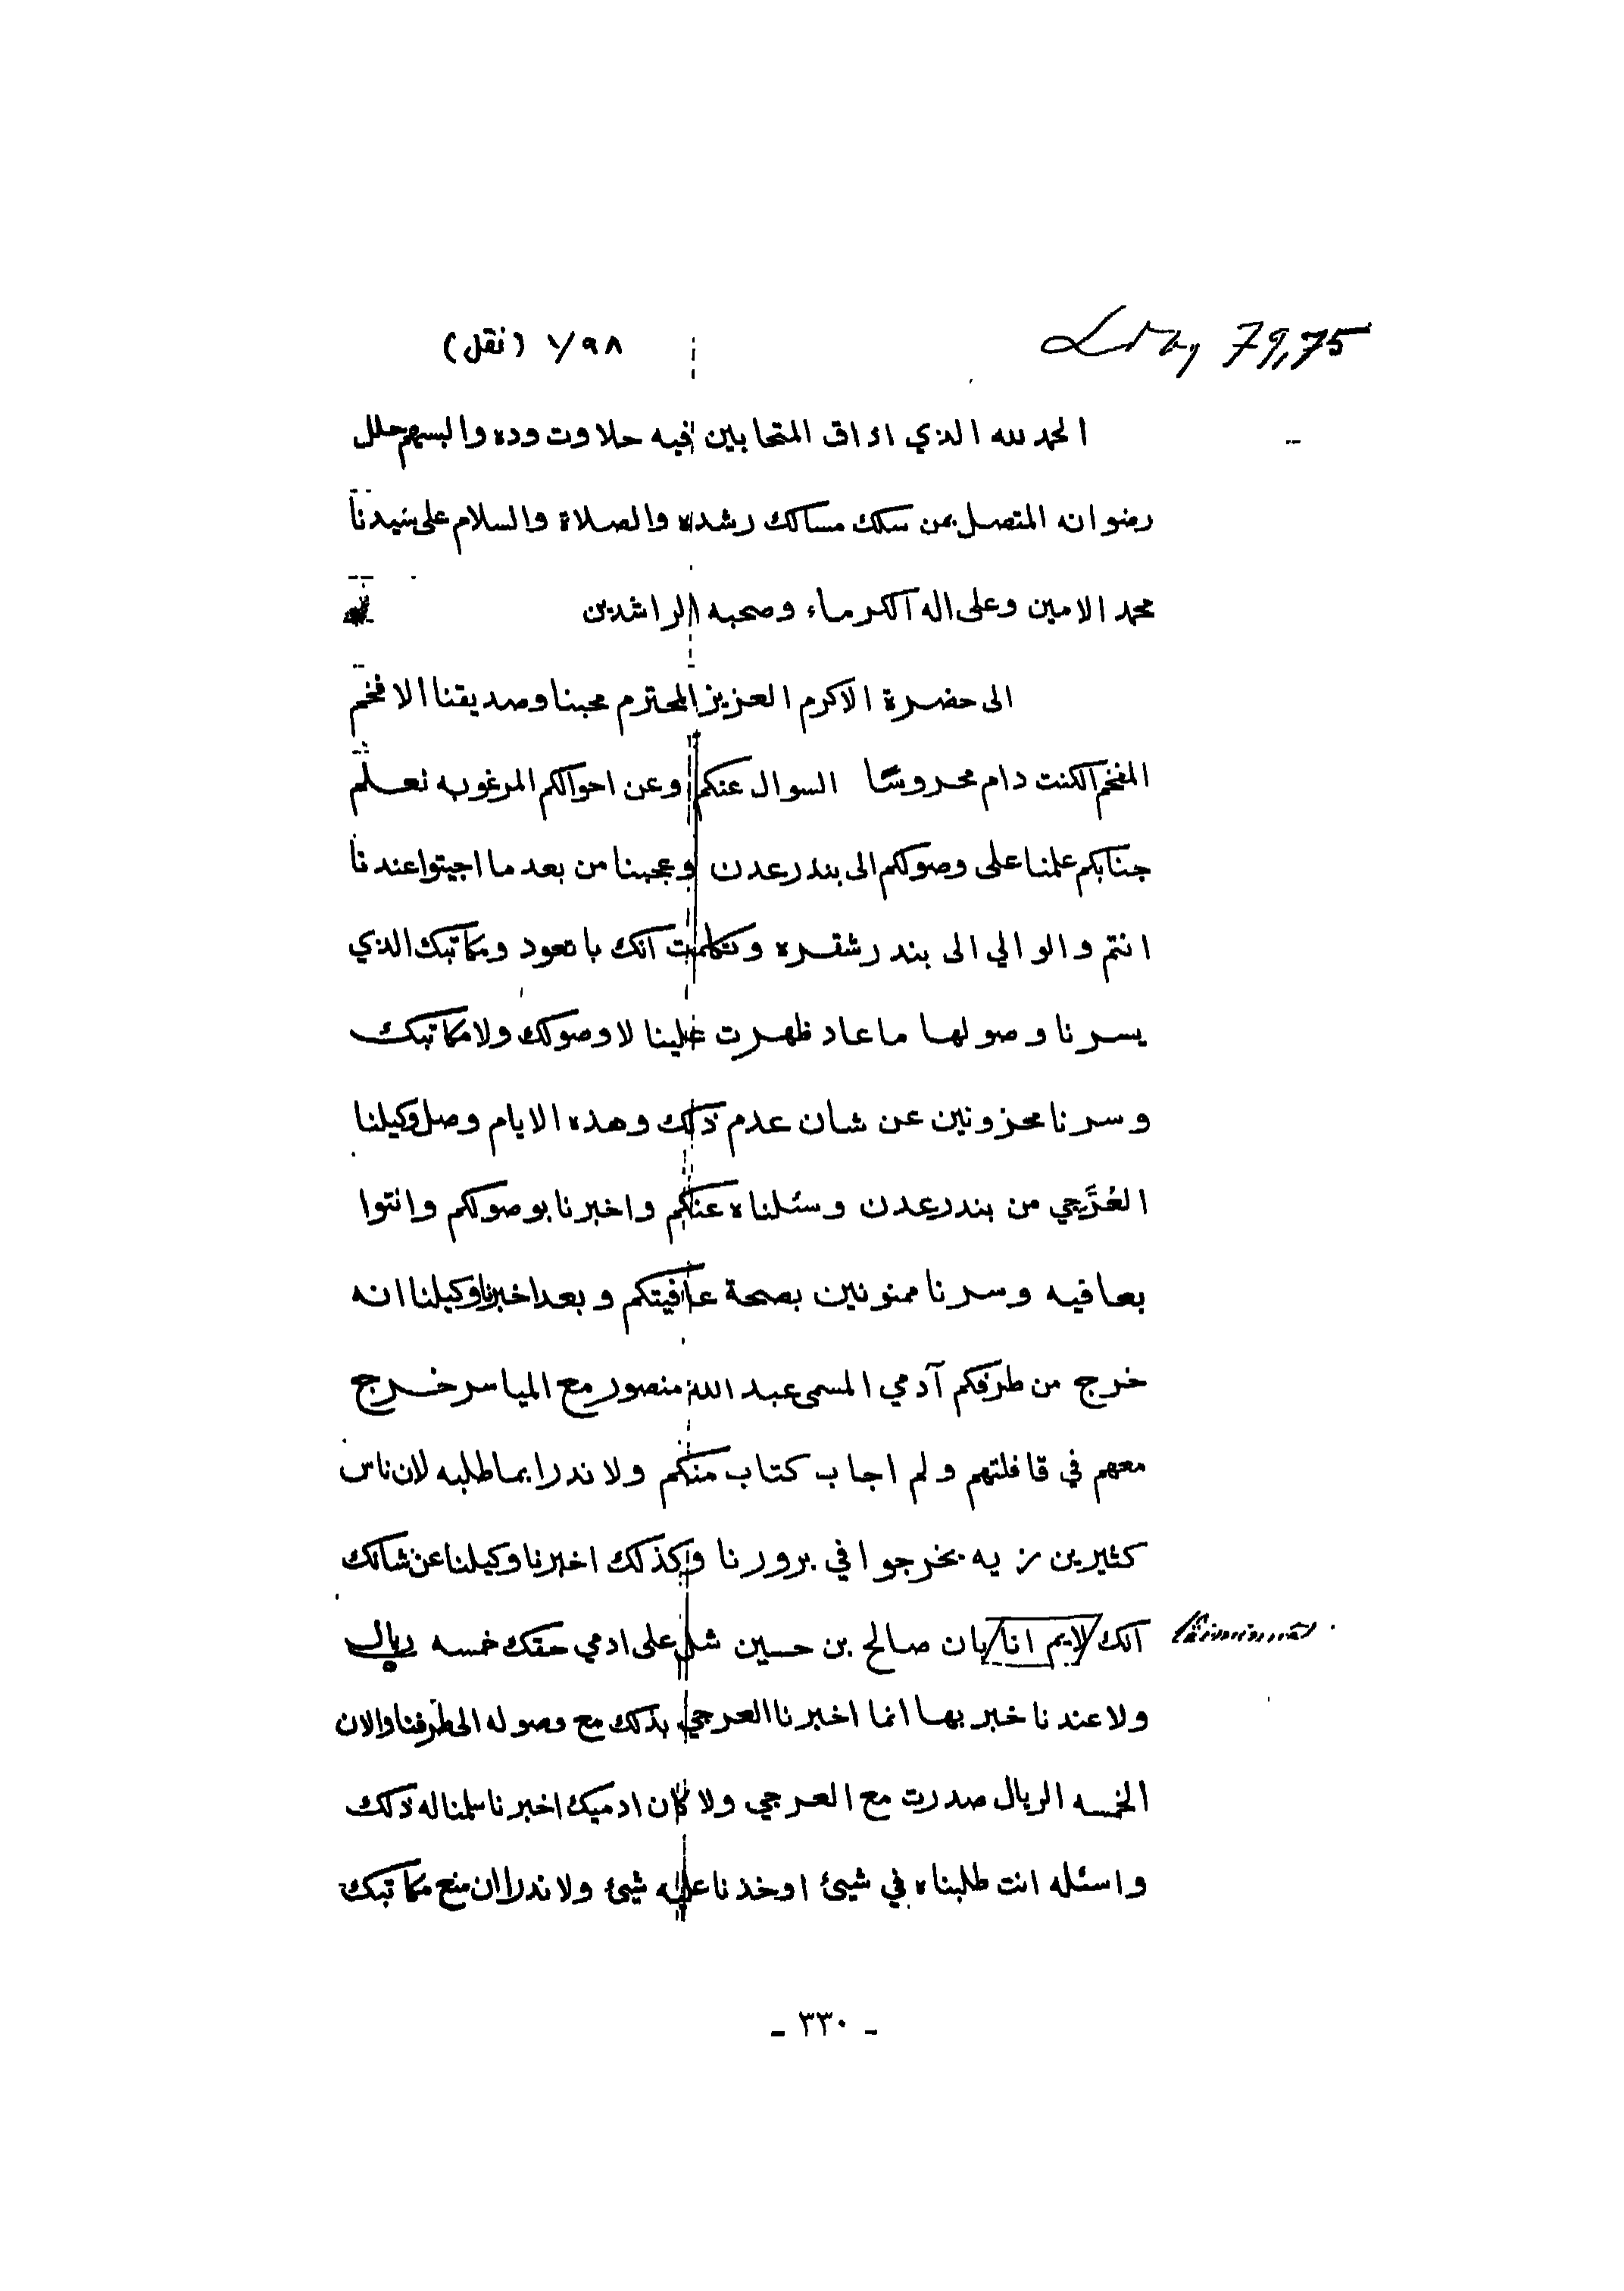 79,75
١/٩٨ (نقل)
الحمد لله الذي اذاق المتحابين فيه حلاوت وده والبسهم حلل
رضوانه المتصل بمن سلك مسالك رشده والصلاة والسلام على سيدنا
محمد الامين وعلى اله الكرماء وصحبه الراشدين
الى حضرة الاكرم العزيز المحترم محبنا وصديقنا الافخم
المفخم الكنت دام محروسًا السوال عنكم وعن احوالكم المرغوبه نعلم
جنابكم علمنا على وصولكم الى بندر عدن وعجبنا من بعد ما اجيتوا عندنا
انتم والوالي الى بندر شقره وتكلمت انك با تعود ومكاتبك الذي
يسرنا وصولها ما عاد ظهرت علينا لا وصولك ولا مكاتبك
وسرنا محزونين عن شان عدم ذلك وهذه الايام وصل وكيلنا
العُرَّجي من بندر عدن وسئلناه عنكم واخبرنا بوصولكم وانتوا
بعافيه وسرنا ممنونين بصحة عافيتكم وبعد اخبرنا وكيلنا انه
خرج من طرفكم آدمي المسمى عبد الله منصور مع المياسر خرج
معهم في قافلتهم ولم اجاب كتاب منكم ولا ندرا بما طلبه لان ناس
كثيرين زيه بخرجوا في برورنا وكذلك اخبرنا وكيلنا عن شانك
انك لايم انا بان صالح بن حسين شل على ادمي حقك خمسه ريال
ولا عندنا خبر بها انما اخبرنا العرجي بذلك مع وصوله الى طرفنا والان
الخمسه الريال صدرت مع العرجي ولا كان ادميك اخبرنا سلمنا له ذلك
واسئله انت طلبناه في شيئ اوخذنا عليه شيئ ولا ندرا ان منع مكاتبك
- ٣٣٠ -